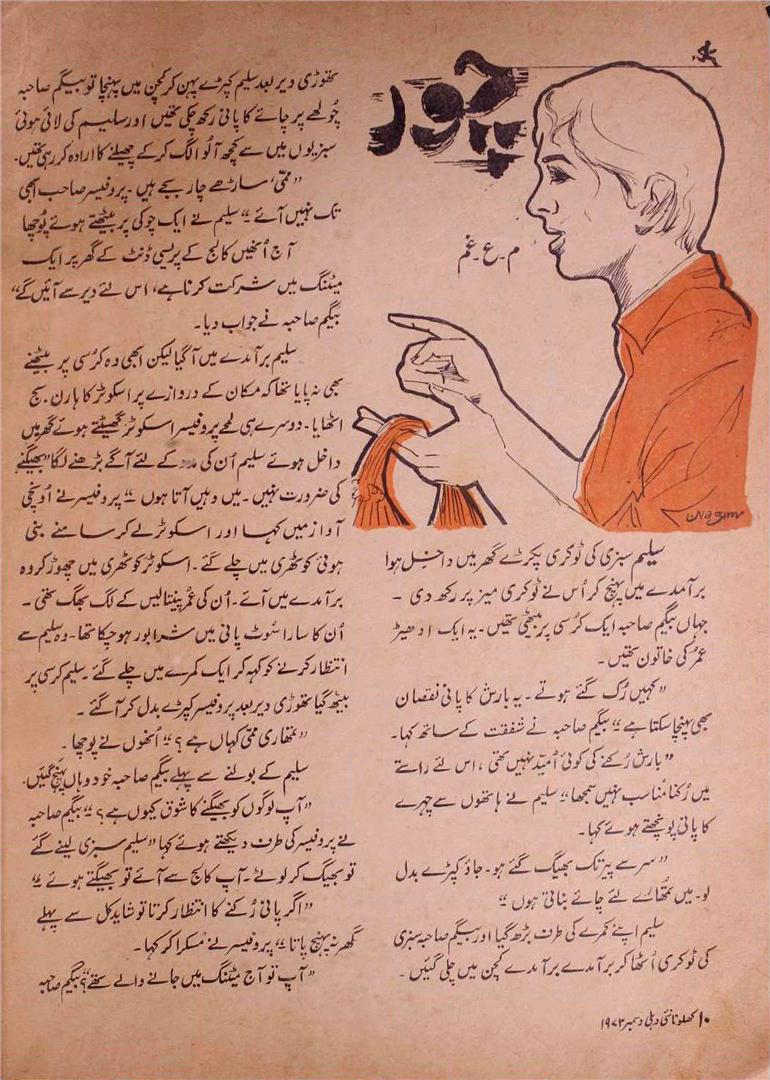 چور
م۔ع۔غم
سلیم سبزی کی ٹوکری پکڑے گھر میں داخل ہوا
برآمدے میں پہنچ کر اُس نے ٹوکری میز پر رکھ دی ۔
جہاں بیگم صاحبہ ایک کرسی پر بیٹھی تھیں۔ یہ ایک ادھیڑ
عمر کی خاتون تھیں۔
”کہیں رُک گئے ہوتے ۔ یہ بارش کا پانی نقصان
بھی پہنچا سکتا ہے“ بیگم صاحبہ نے شفقت کے ساتھ کہا۔
”بارش رُکنے کی کوئی اُمید نہیں تھی، اس لئے راستے
میں رُکنا مُناسب نہیں سمجھا“ سلیم نے ہاتھوں سے چہرے
کا پانی پونچھتے ہوئے کہا۔
”سر سے پیر تک بھیگ گئے ہو۔ جاؤ کپڑے بدل
لو۔ میں تمھارے لئے چائے بناتی ہوں“
سلیم اپنے کمرے کی طرف بڑھ گیا اور بیگم صاحبہ سبزی
کی ٹوکری اُٹھا کر برآمدے برآمدے کچن میں چلی گئیں ۔
تھوڑی دیر بعد سلیم کپڑے پہن کر کچن میں پہنچا تو بیگم صاحبہ
چُولھے پر چائے کا پانی رکھ چکی تھیں اور سلیم کی لائی ہوئی
سبزیوں میں سے کچھ آلو الگ کرکے چھیلنے کا ارادہ کر رہی تھیں۔
”ممّی، ساڑھے چار بجے ہیں۔ پروفیسر صاحب ابھی
تک نہیں آئے“ سلیم نے ایک چوکی پر بیٹھتے ہوئے پُوچھا
آج اُنھیں کالج کے پریسی ڈنٹ کے گھر پر ایک
میٹنگ میں شرکت کرنا ہے، اس لئے دیر سے آئیں گے“
بیگم صاحبہ نے جواب دیا۔
سلیم برآمدے میں آگیا لیکن ابھی وہ کرسی پر بیٹھنے
بھی نہ پایا تھا کہ مکان کے دروازے پر اسکوٹر کا ہارن بج
اٹھایا۔ دوسرے ہی لمحے پروفیسر اسکوٹر گھسیٹتے ہوئے گھر میں
داخل ہوئے سلیم اُن کی مدد کے لئے آگے بڑھنے لگا ”بھیگنے
کی ضرورت نہیں۔ میں وہیں آتا ہوں“ پروفیسر نے اُونچی
آواز میں کہا اور اسکوٹر لے کر سامنے بنی
ہوئی کوٹھری میں چلے گئے۔ اسکوٹر کوٹھری میں چھوڑ کر وہ
برآمدے میں آئے۔ اُن کی عُمر پینتالیس کے لگ بھگ تھی۔
اُن کا سارا سُوٹ پانی میں شرابور ہو چکا تھا۔ وہ سلیم سے
انتظار کرنے کو کہہ کر ایک کمرے میں چلے گئے۔ سلیم کرسی پر
بیٹھ گیا تھوڑی دیر بعد پروفیسر کپڑے بدل کر آگئے۔
”تمھاری ممّی کہاں ہے؟“ اُنھوں نے پوچھا۔
سلیم کے بولنے سے پہلے بیگم صاحبہ خود وہاں پہنچ گئیں۔
”آپ لوگوں کو بھیگنے کا شوق کیوں ہے؟“ بیگم صاحبہ
نے پروفیسر کی طرف دیکھتے ہوئے کہا ”سلیم سبزی لینے گئے
تو بھیگ کر لوٹے۔ آپ کالج سے آئے تو بھیگتے ہوئے“
”اگر پانی رُکنے کا انتظار کرتا تو شاید کل سے پہلے
گھر نہ پہنچ پاتا“ پروفیسر نے مُسکرا کر کہا۔
”آپ تو آج میٹنگ میں جانے والے تھے؟“ بیگم صاحبہ
۱۰ کھلونا نئی دہلی دسمبر ۱۹۷۳